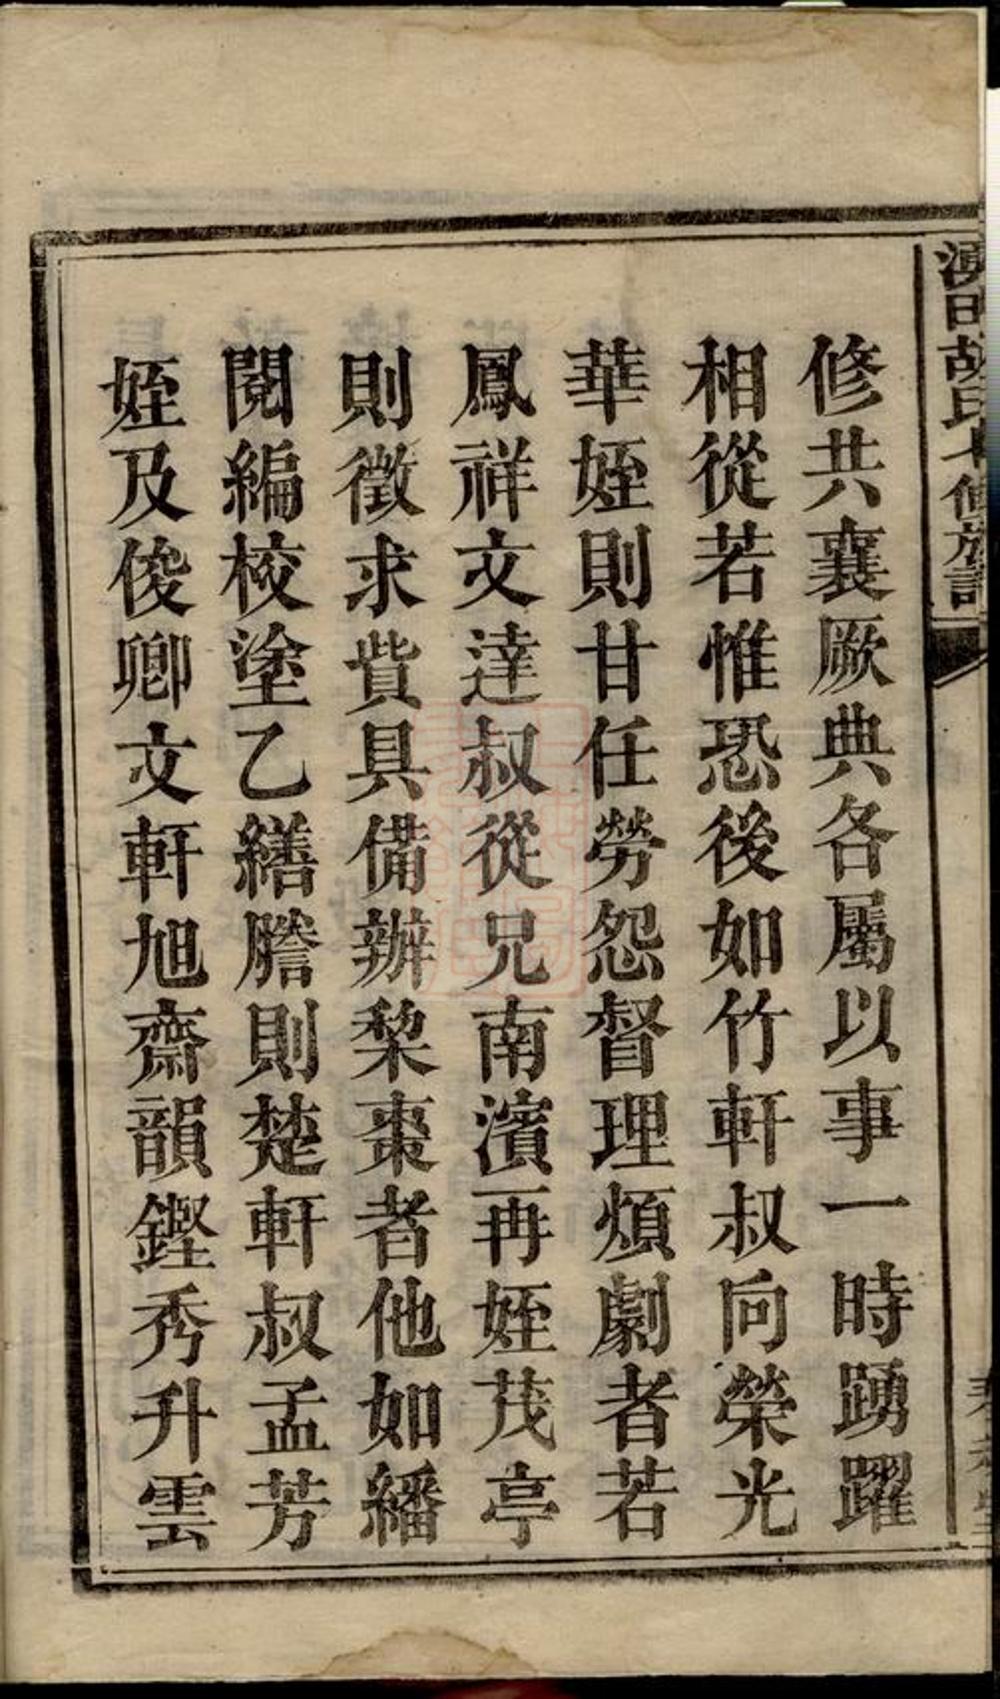 胡氏七修族譜
修共襄厥典各屬以事一時踴躍
相從若惟恐後如竹軒叔向榮光
華姪則甘任勞怨督理煩劇者若
鳳祥文達叔從兄南濱再姪茂亭
則徵求貲具備辦棃棗者他如繙
閱編校塗乙繕謄則楚軒叔孟芳
姪及俊卿文軒旭齋韻鏗秀升雲